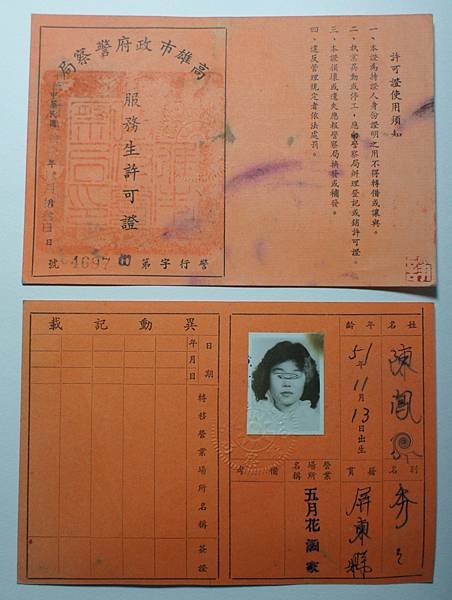 高雄市政府警察局
服務生許可證
中華民國 年 月 日
警行字第 4697 號
許可證使用須知
一、本證為持證人身份證明之用不得轉借或讓與。
二、執業異動或停工，應向警察局辦理登記或繳許可證。
三、本證損壞或遺失應報警察局換發或補發。
四、違反管理規定者依法處罰。
姓名 陳鳳
別名 秀
年齡 51年11月13日出生
籍貫 屏東縣
營業場所名稱 五月花酒家
備考
異動記載
日期
年月日
轉移營業場所名稱
簽證